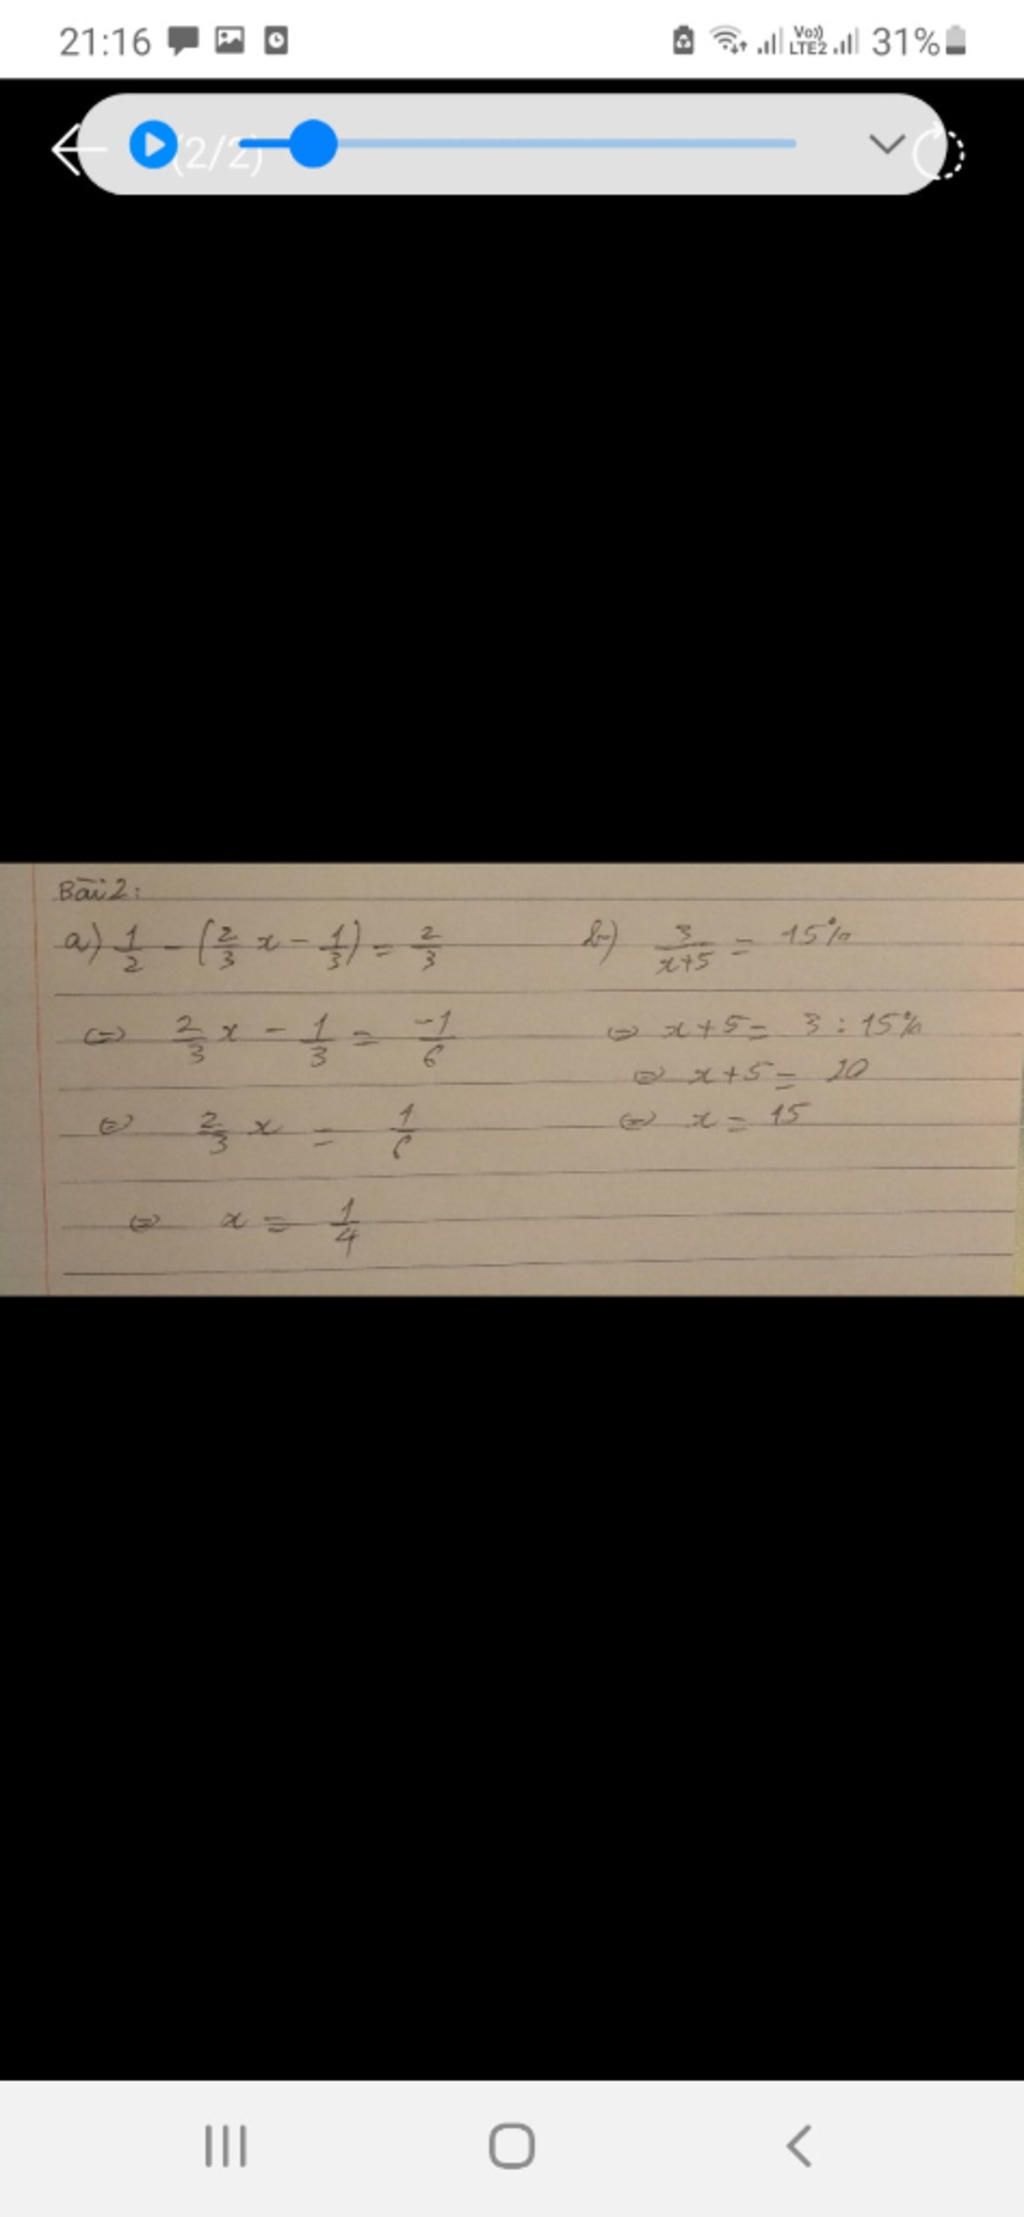 21:16 Vo)) LTE2 31%
(2/2)
Bài 2:
a) 1/2 - (2/3 x - 1/3) = 2/3
⇔ 2/3 x - 1/3 = -1/6
⇔ 2/3 x = 1/6
⇔ x = 1/4
b) 3/(x+5) = 15%
⇔ x+5 = 3 : 15%
⇔ x+5 = 20
⇔ x = 15